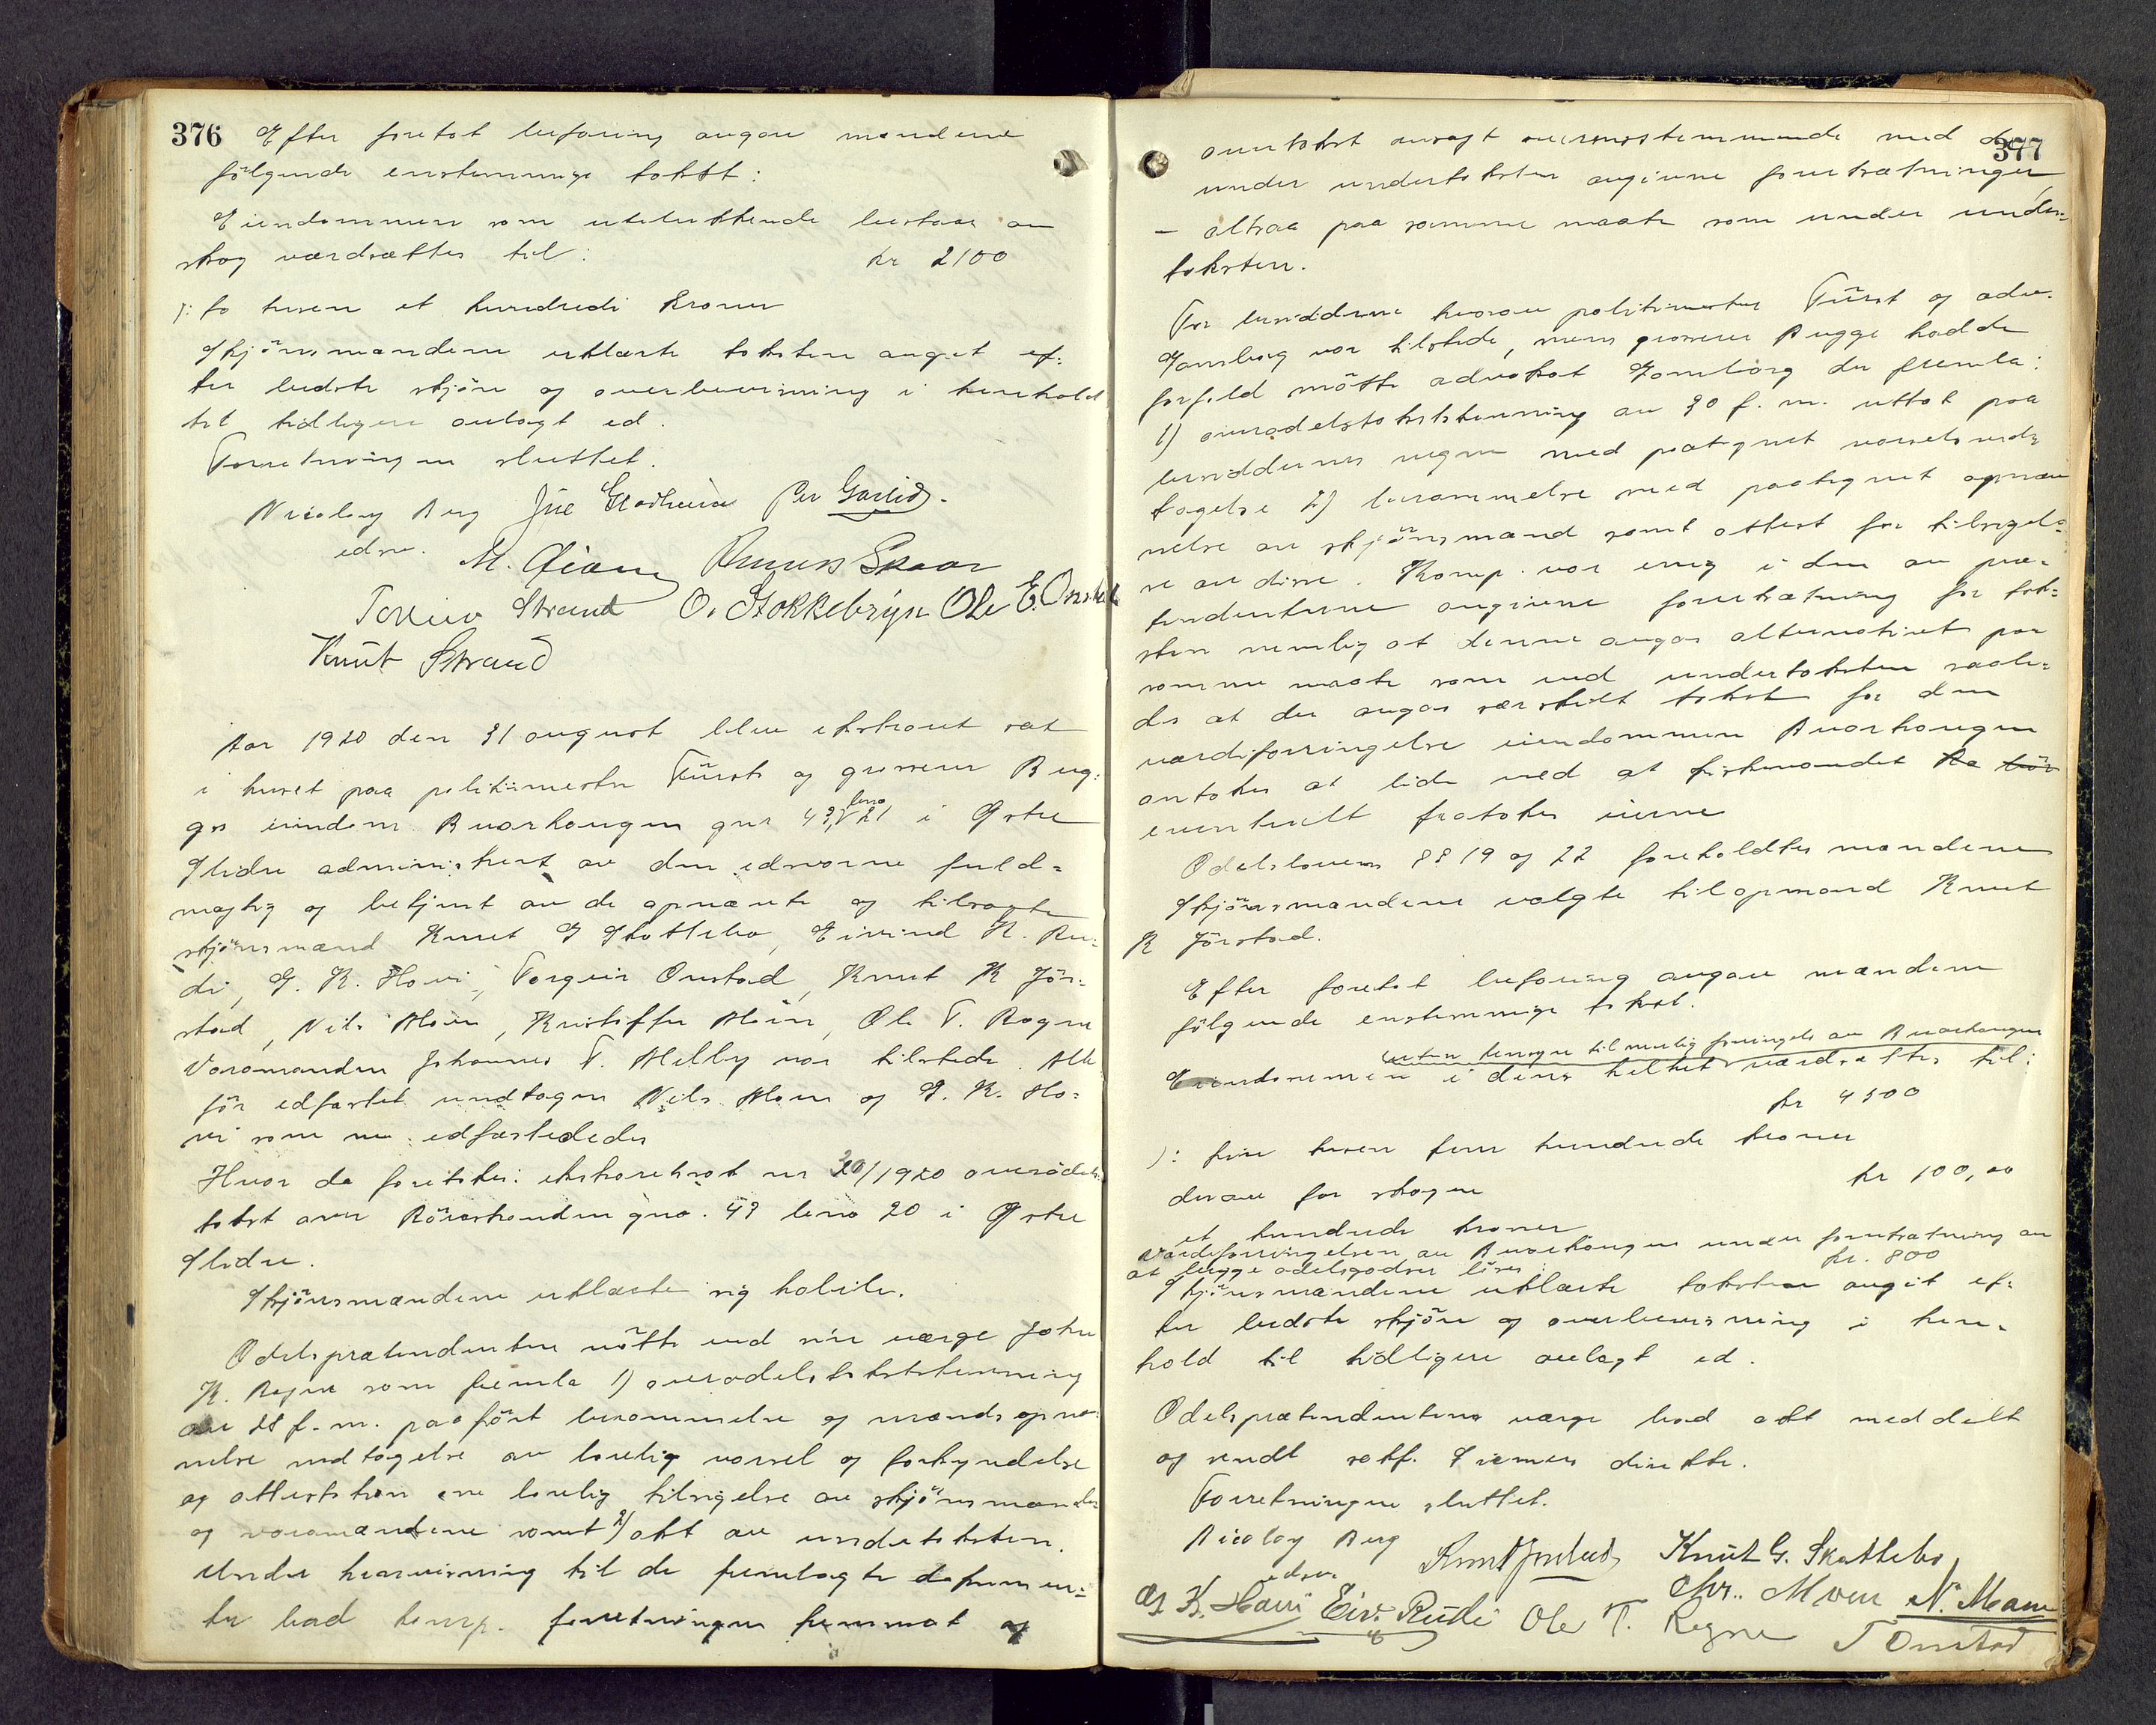 376 Efter foretat befaring avgav mændene
følgende enstemmige takst:
Eiendommen som utelukkende bestaar av
skog værdsættes til: kr 2100
): to tusen et hundrede kroner
Skjønsmændene erklærte taksten avgit ef-
ter bedste skjøn og overbevisning i henhold
til tidligere avlagt ed.
Forretningen sluttet.
Nicolay Berg Per Garlid.
edsv. Skaar
Strand O. Stokkebryn Ole E. Onstad
Knut Strand
Aar 1920 den 31 august blev ekstraret sat
i huset paa politimester Fürst og grosserer Bug-
ges eiendom Buarhaugen gnr 43, bno 21 i Østre
Slidre administrert av den edsvorne fuld-
mægtig og betjent av de opnævnte og tilsagte
skjønsmænd Knut G Skattebo, Eivind K. Ru-
di, G. K. Hovi, Torgeir Onstad, Knut K Jør-
stad, Nils Moen, Kristoffer Moen, Ole T. Rogne
Varamanden Johannes T. Melby var tilstede. Alle
før edfæstet undtagen Nils Moen og G. K. Ho-
vi som nu edfæstededes
Hvor da foretokes: ekstraretssak nr 20/1920 overodels
takst over gno. 43 bno 20 i Østre
Slidre.
Skjønsmændene erklærte sig habile.
Odelsprætendenten møtte ved sin værge John
K. Rogne som fremla 1) overodelstakststevning
av 28 f. m. paaført berammelse og mands opnæv-
nelse vedtagelse av lovlig varsel og forkyndelse
og attestation om lovlig tilsigelse av skjønsmænden
og varamændene samt 2) akt av undertaksten.
Under henvisning til de fremlagte dokumen-
ter bad komp. forretningen fremmet og
377
overtakst avsagt overensstemmende med de
under undertaksten avgivne forutsætninger
- altsaa paa samme maate som under under-
taksten.
For besidderne hvorav politimester Fürst og adv.
Gamborg var tilstede, mens grosserer Bugge hadde
forfald møtte advokat Gamborg der fremla:
1) overodelstakststevning av 30 f. m. uttat paa
besiddernes vegne med paategnet varselsved-
tagelse 2) berammelse med paategnet opnæv-
nelse av skjønsmænd samt attest for tilsigel-
se av disse. Komp. var enig i den av præ-
tendenterne avgivne forutsætning for tak-
sten nemlig at denne avgas alternativt paa
samme maate som ved undertaksten saale-
des at der avgas særskilt takst for den
værdiforringelse eiendommen Buarhaugen
antokes at lide ved at fiskevandet
eventuelt fratokes eierne
Odelslovens §§ 19 og 22 foreholdtes mændene
Skjønsmændene valgte til opmand Knut
K Jørstad.
Efter foretat befaring avgav mændene
følgende enstemmige takst:
uten hensyn til mulig forringelse av Buarhaugen
Eiendommen i dens helhet værdsættes til:
kr 4500
): fire tusen fem hundrede kroner
derav for skogen kr 100,00
et hundrede kroner
Værdiforringelsen av Buarhaugen under forutsætning av
at begge odelsgodser løses: kr. 800
Skjønsmændene erklærte taksten avgit ef-
ter bedste skjøn og overbevisning i hen-
hold til tidligere avlagt ed.
Odelsprætendentens værge bad akt meddelt
og sendt sakf. direkte.
Forretningen sluttet.
Nicolay Berg Knut Jørstad Knut G. Skattebo
edsv. Chr. Moen N. Moen
G. K. Hovi Eiv. Rudi Ole T. Rogne T Onstad